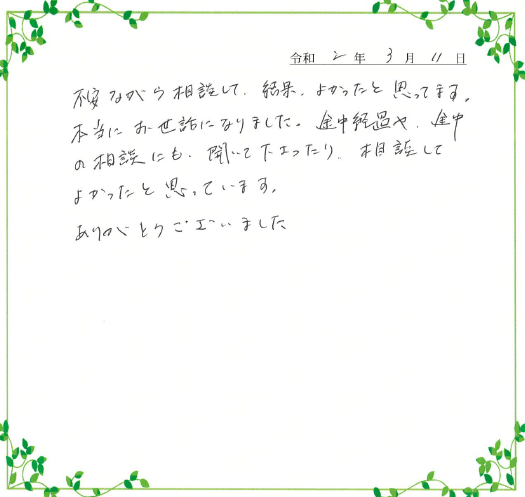 令和 2 年 3 月 11 日
不安ながら相談して、結果、よかったと思ってます。
本当にお世話になりました。途中経過や、途中
の相談にも、聞いて下さったり、相談して
よかったと思っています。
ありがとうございました